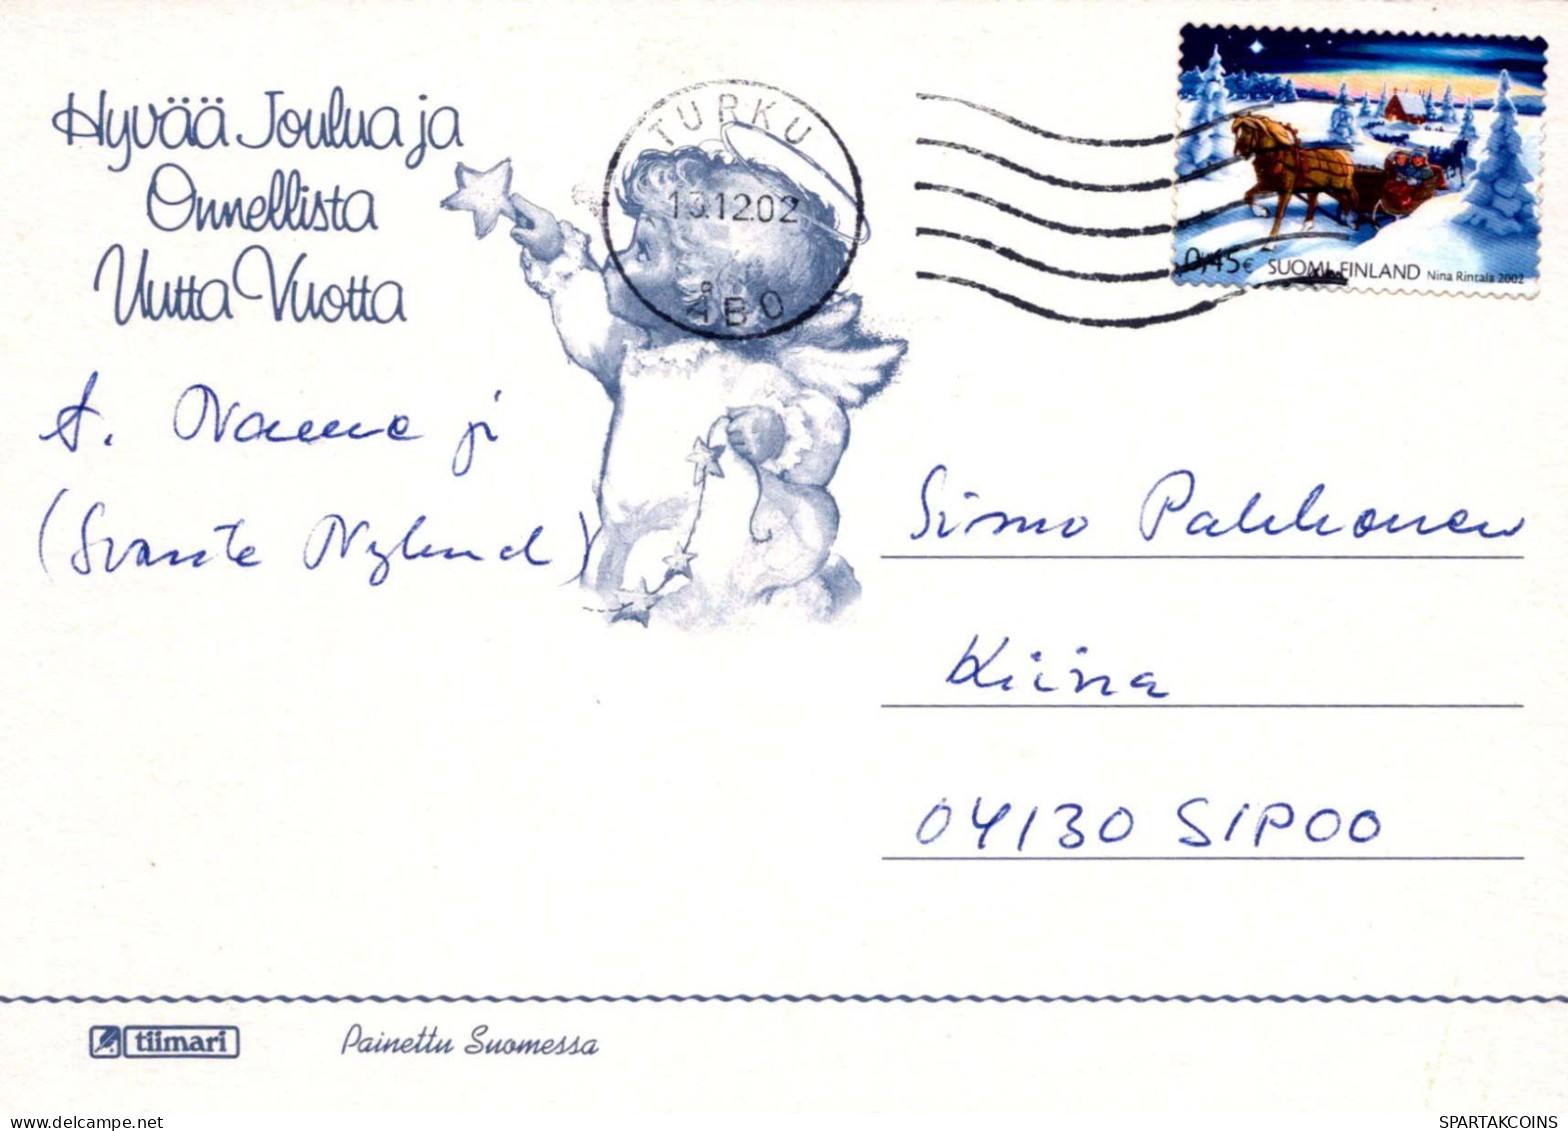 Hyvää Joulua ja
Onnellista
Uutta Vuotta
TURKU
13.12.02
ÅBO
0,45€ SUOMI FINLAND Nina Rintala 2002
A.
(Svante Nylund)
Simo Pakkonen
Kiina
04130 SIPOO
tiimari
Painettu Suomessa
SPARTAKCOINS